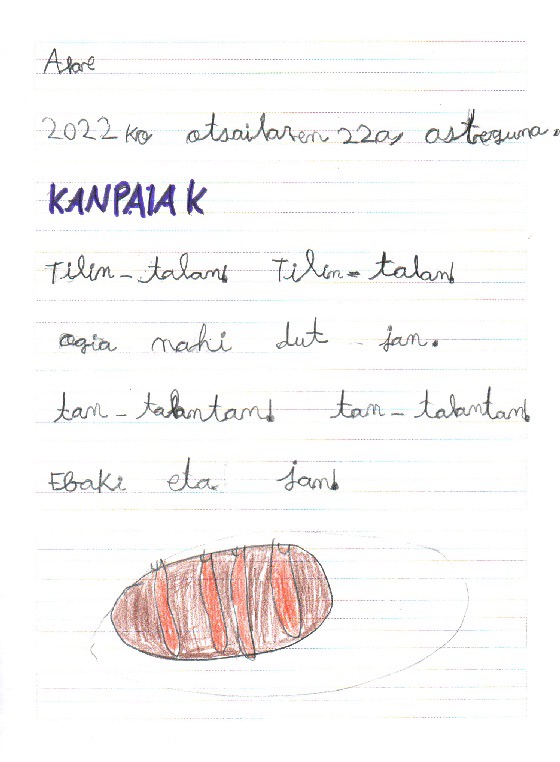 Atare
2022ko otsailaren 22a, asteguna.
KANPAIAK
Tilin-talan! Tilin-talan!
ogia nahi dut jan.
tan-talantan! tan-talantan!
Ebaki eta jan!